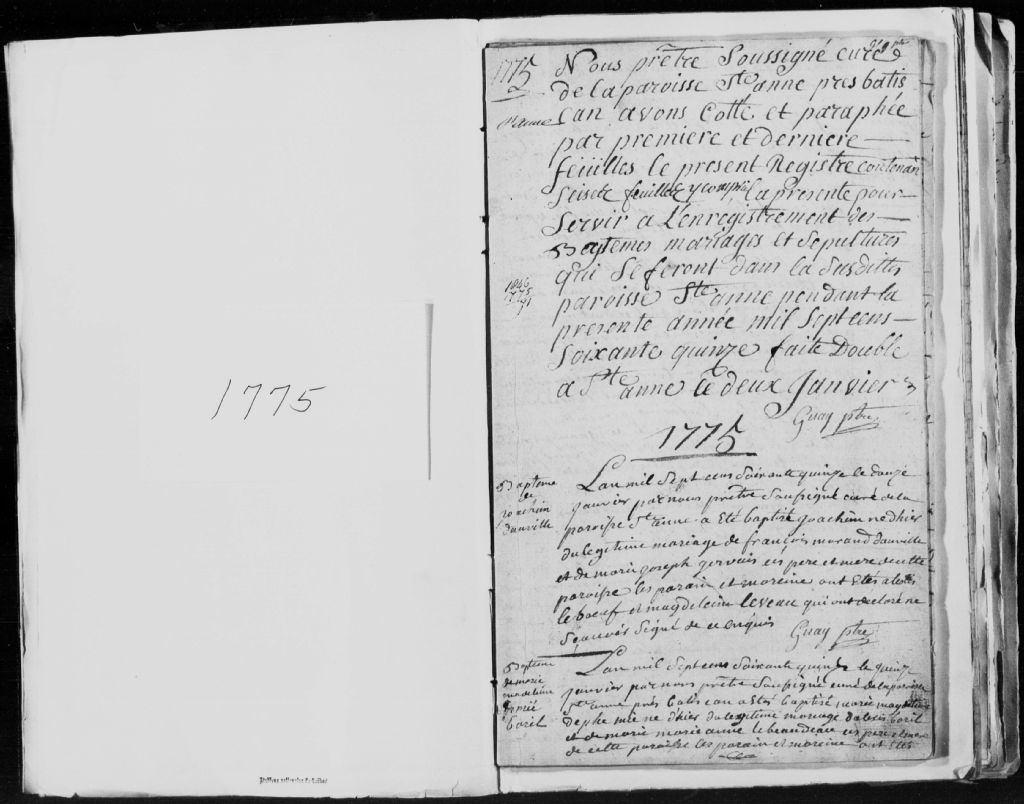 1775
1775
Ste anne
Nous prêtre Soussigné curé
de la paroisse Ste anne pres batis
can avons Cotté et paraphée
par premiere et derniere
feüilles le present Registre contenan
Seise feuilles y compris la presente pour
Servir a L'enregistrement des
Baptemes mariages et Sepultures
qui Se feront dans la Susditte
paroisse Ste anne pendant la
presente année mil Sept cens
Soixante quinze faite Double
a Ste anne le deux Janvier
Guay ptre
1846
1775
71
1775
Bapteme
de
Joachim
dauville
L'an mil Sept cens Soixante quinze le douze
janvier par nous prêtre Soussigné curé de la
paroisse Ste anne a Eté baptisé Joachim né d'hier
du legitime mariage de françois morand dauville
et de marie joseph gervais ses pere et mere de cette
paroisse les parain et maraine ont Etés
le boeuf et magdeleine leveau qui ont declaré ne
Sçavoir Signé de ce enquis
Guay ptre
Bapteme
de marie
magdeleine
baril
L'an mil Sept cens Soixante quinze le quinze
janvier par nous prêtre Soussigné curé de la paroisse
Ste anne près batiscan a Etés baptisé marie magdeleine
né d'hier du legitime mariage de louis baril
et de marie marie anne lebeaudeau ses pere et mere
de cette paroisse les parain et maraine ont Etés
Archives nationales du Québec